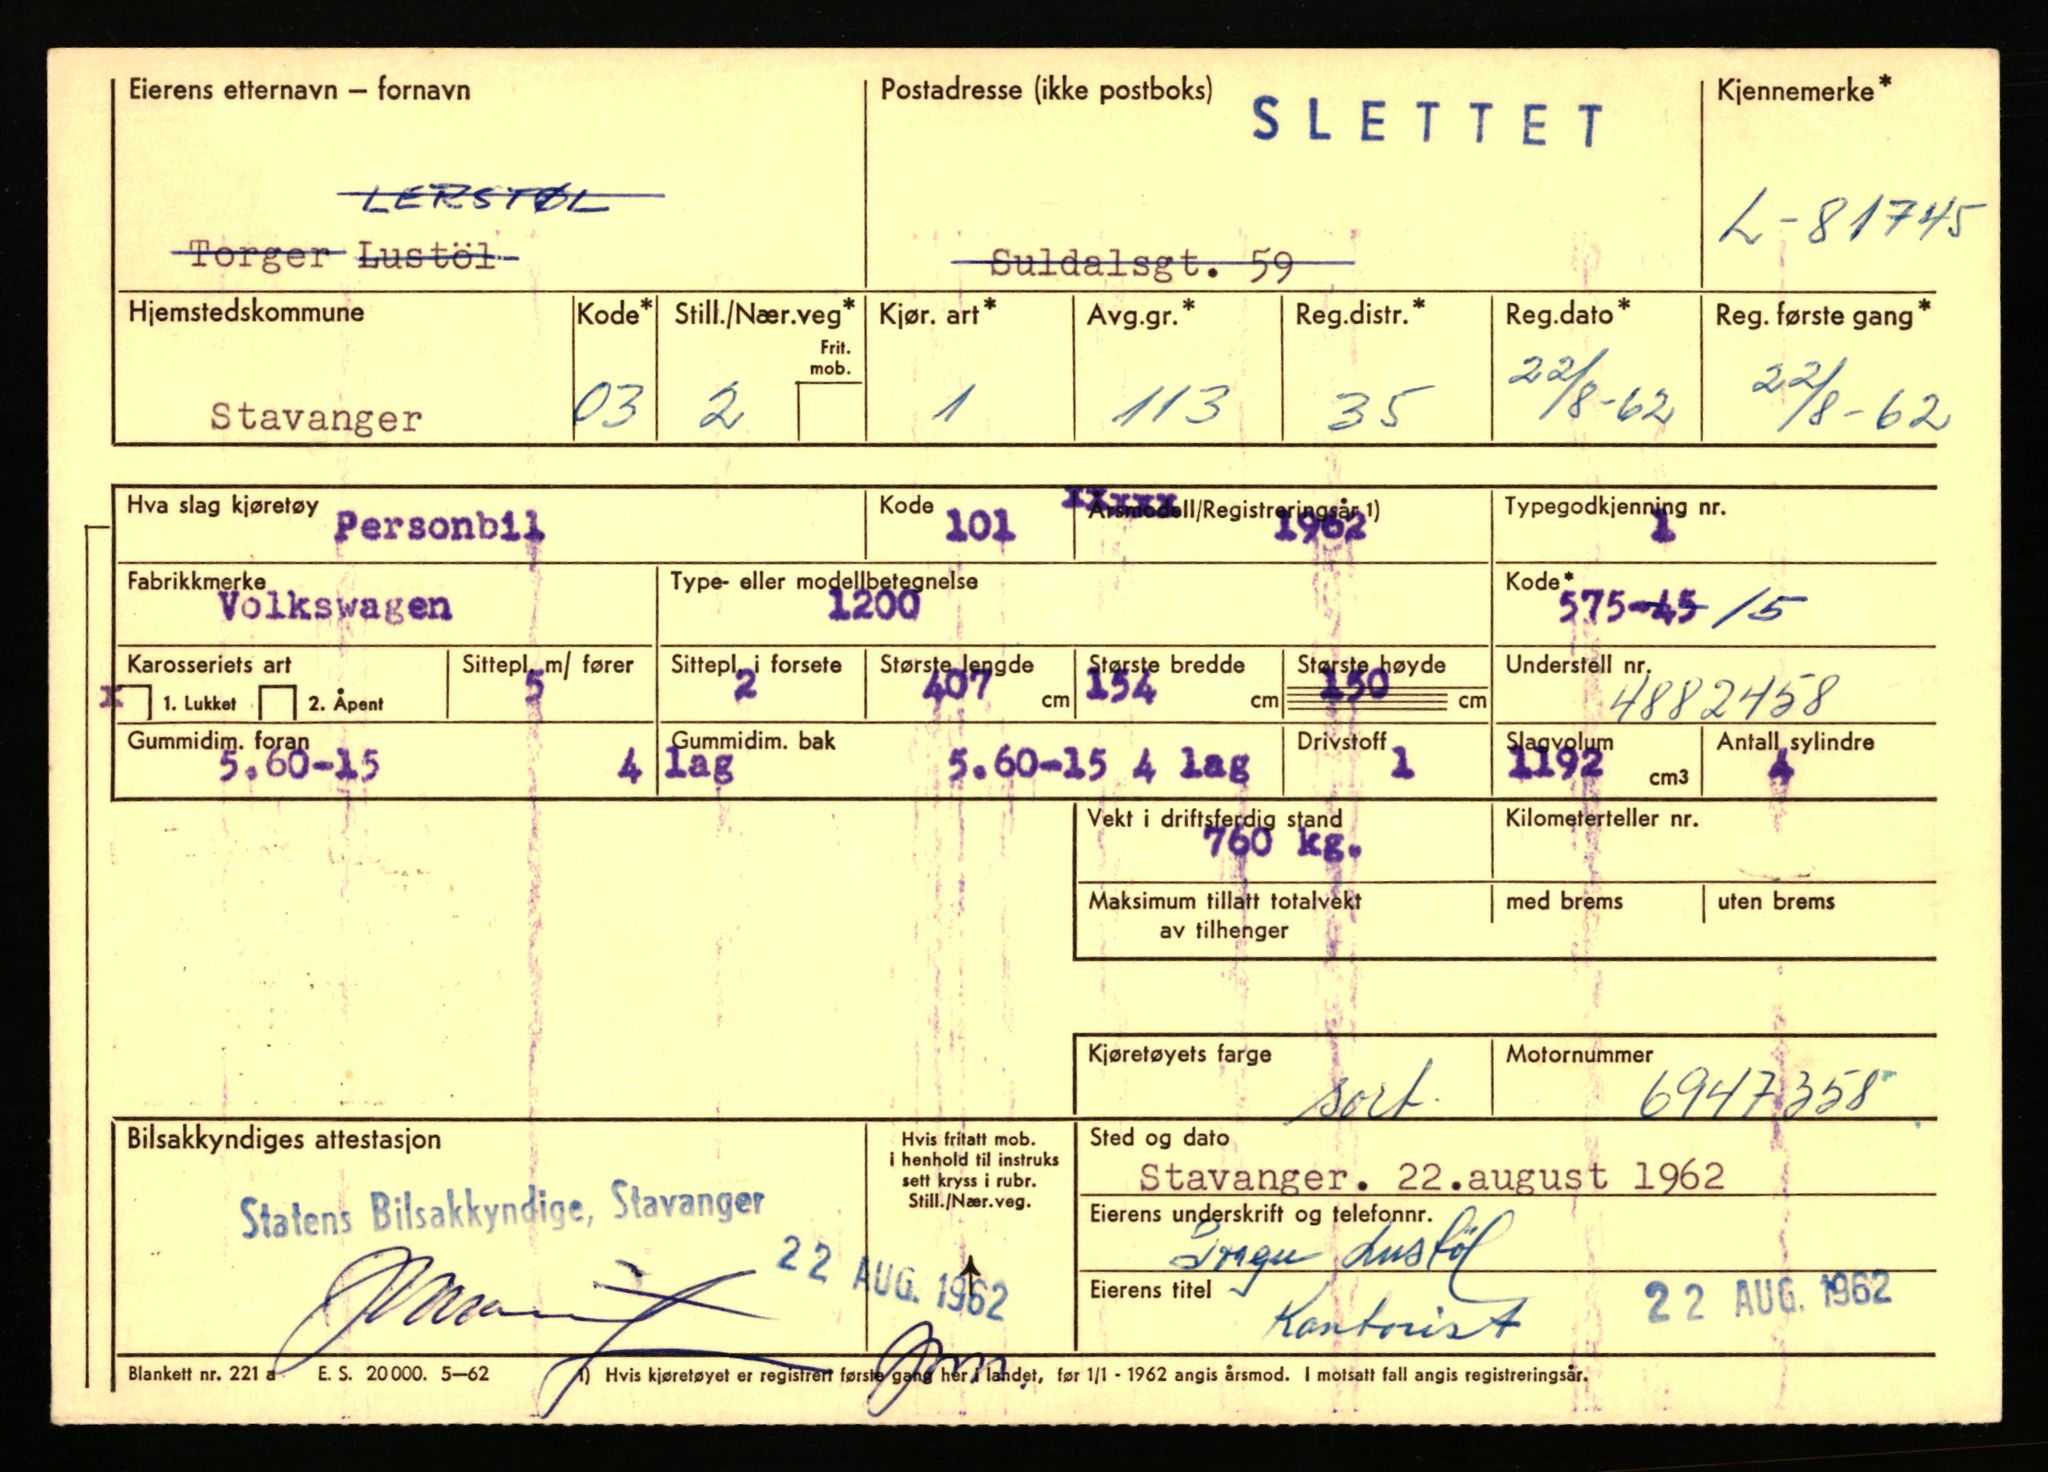 Eierens etternavn – fornavn
Postadresse (ikke postboks)
SLETTET
Kjennemerke*
LERSTØL
Torger Lustöl
Suldalsgt. 59
L-81745
Hjemstedskommune
Kode*
Still./Nær.veg*
Frit. mob.
Kjør. art*
Avg.gr.*
Reg.distr.*
Reg.dato*
Reg. første gang*
Stavanger
03
2
1
113
35
22/8-62
22/8-62
Hva slag kjøretøy
Personbil
Kode
101
xxxxx
Årsmodell/Registreringsår 1)
1962
Typegodkjenning nr.
1
Fabrikkmerke
Volkswagen
Type- eller modellbetegnelse
1200
Kode*
575-45 /5
Karosseriets art
x 1. Lukket 2. Åpent
Sittepl. m/ fører
5
Sittepl. i forsete
2
Største lengde
407 cm
Største bredde
154 cm
Største høyde
150 cm
Understell nr.
4882458
Gummidim. foran
5.60-15 4 lag
Gummidim. bak
5.60-15 4 lag
Drivstoff
1
Slagvolum
1192 cm3
Antall sylindre
4
Vekt i driftsferdig stand
760 kg.
Kilometerteller nr.
Maksimum tillatt totalvekt
av tilhenger
med brems
uten brems
Kjøretøyets farge
sort.
Motornummer
6947358
Bilsakkyndiges attestasjon
Hvis fritatt mob.
i henhold til instruks
sett kryss i rubr.
Still./Nær.veg.
Sted og dato
Stavanger. 22.august 1962
Statens Bilsakkyndige, Stavanger
22 AUG. 1962
Eierens underskrift og telefonnr.
Torger Lustöl
Eierens titel
Kontorist
22 AUG. 1962
Blankett nr. 221 a E. S. 20000. 5–62 1) Hvis kjøretøyet er registrert første gang her i landet, før 1/1 - 1962 angis årsmod. I motsatt fall angis registreringsår.